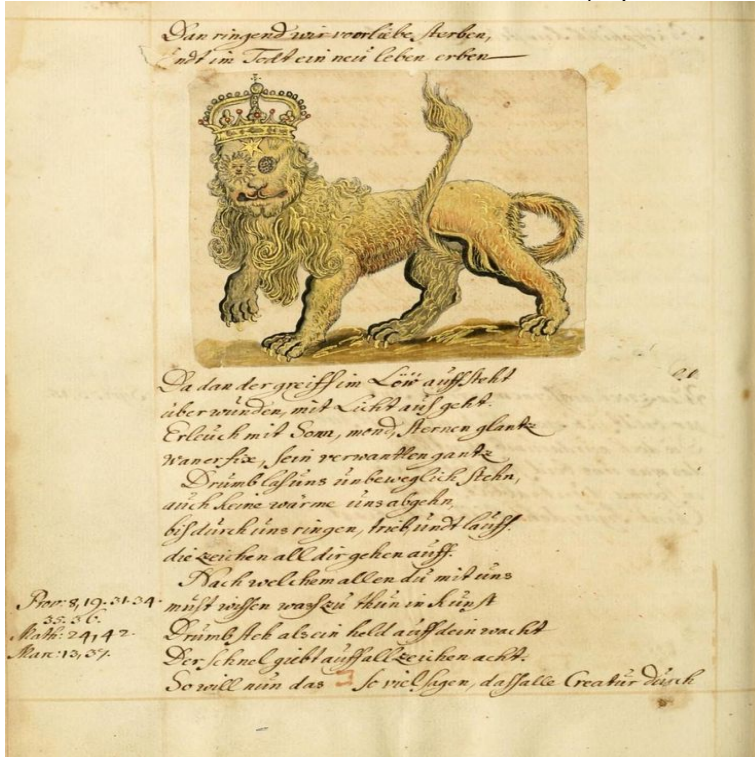 Dan ringend wir vor liebe sterben,
Undt im Todt ein neü leben erben
Da dan der greiff im Löw auffsteht
überwunden, mit Licht aufgeht.
Erleuch mit Sonn, mond, sternen glantz
wan er fix, sein verwantlen gantz
Drümb las üns ünbeweglich stehn,
auch keine wärme üns abgehn,
biß dürch üns ringen, trieb, ündt lauff.
die zeichen all dir gehen auff.
Nach welchem allen dü mit üns
Prov: 8, 19. 31. 34.
35. 36.
müst wissen wass zu thün in künst
Math: 24, 42.
Drümb steh als ein held auff dein wacht
Marc: 13, 37.
Der schnel giebt auff all zeichen acht.
So will nün das so viel sagen, dass alle Creatür dürch